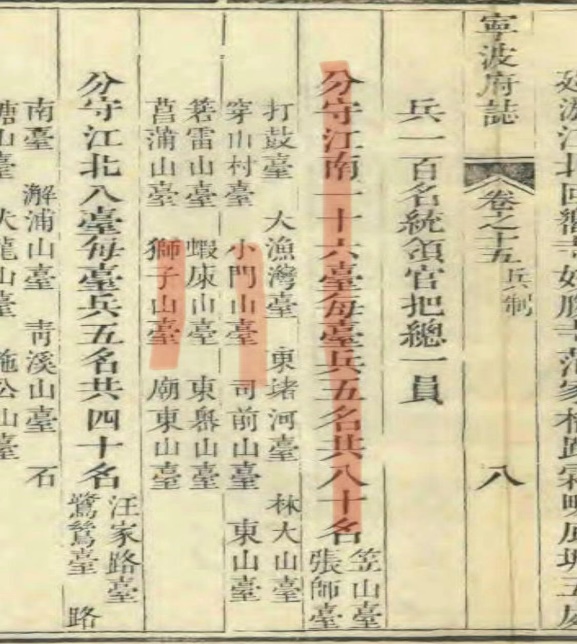 江北回嚮寺
寧波府誌 卷之十五 兵制 八
兵一百名統領官把總一員
分守江南一十六臺每臺兵五名共八十名 笠山臺
張師臺
打鼓臺 大漁灣臺 東堵河臺 林大山臺
穿山村臺 小門山臺 司前山臺 東山臺
箬雷山臺 蝦康山臺 東嶴山臺
菖蒲山臺 獅子山臺 廟東山臺
分守江北八臺每臺兵五名共四十名 汪家路臺
鷺鷥臺 路
南臺 澥浦山臺 靑溪山臺 石
塘山臺 大龍山臺 施公山臺